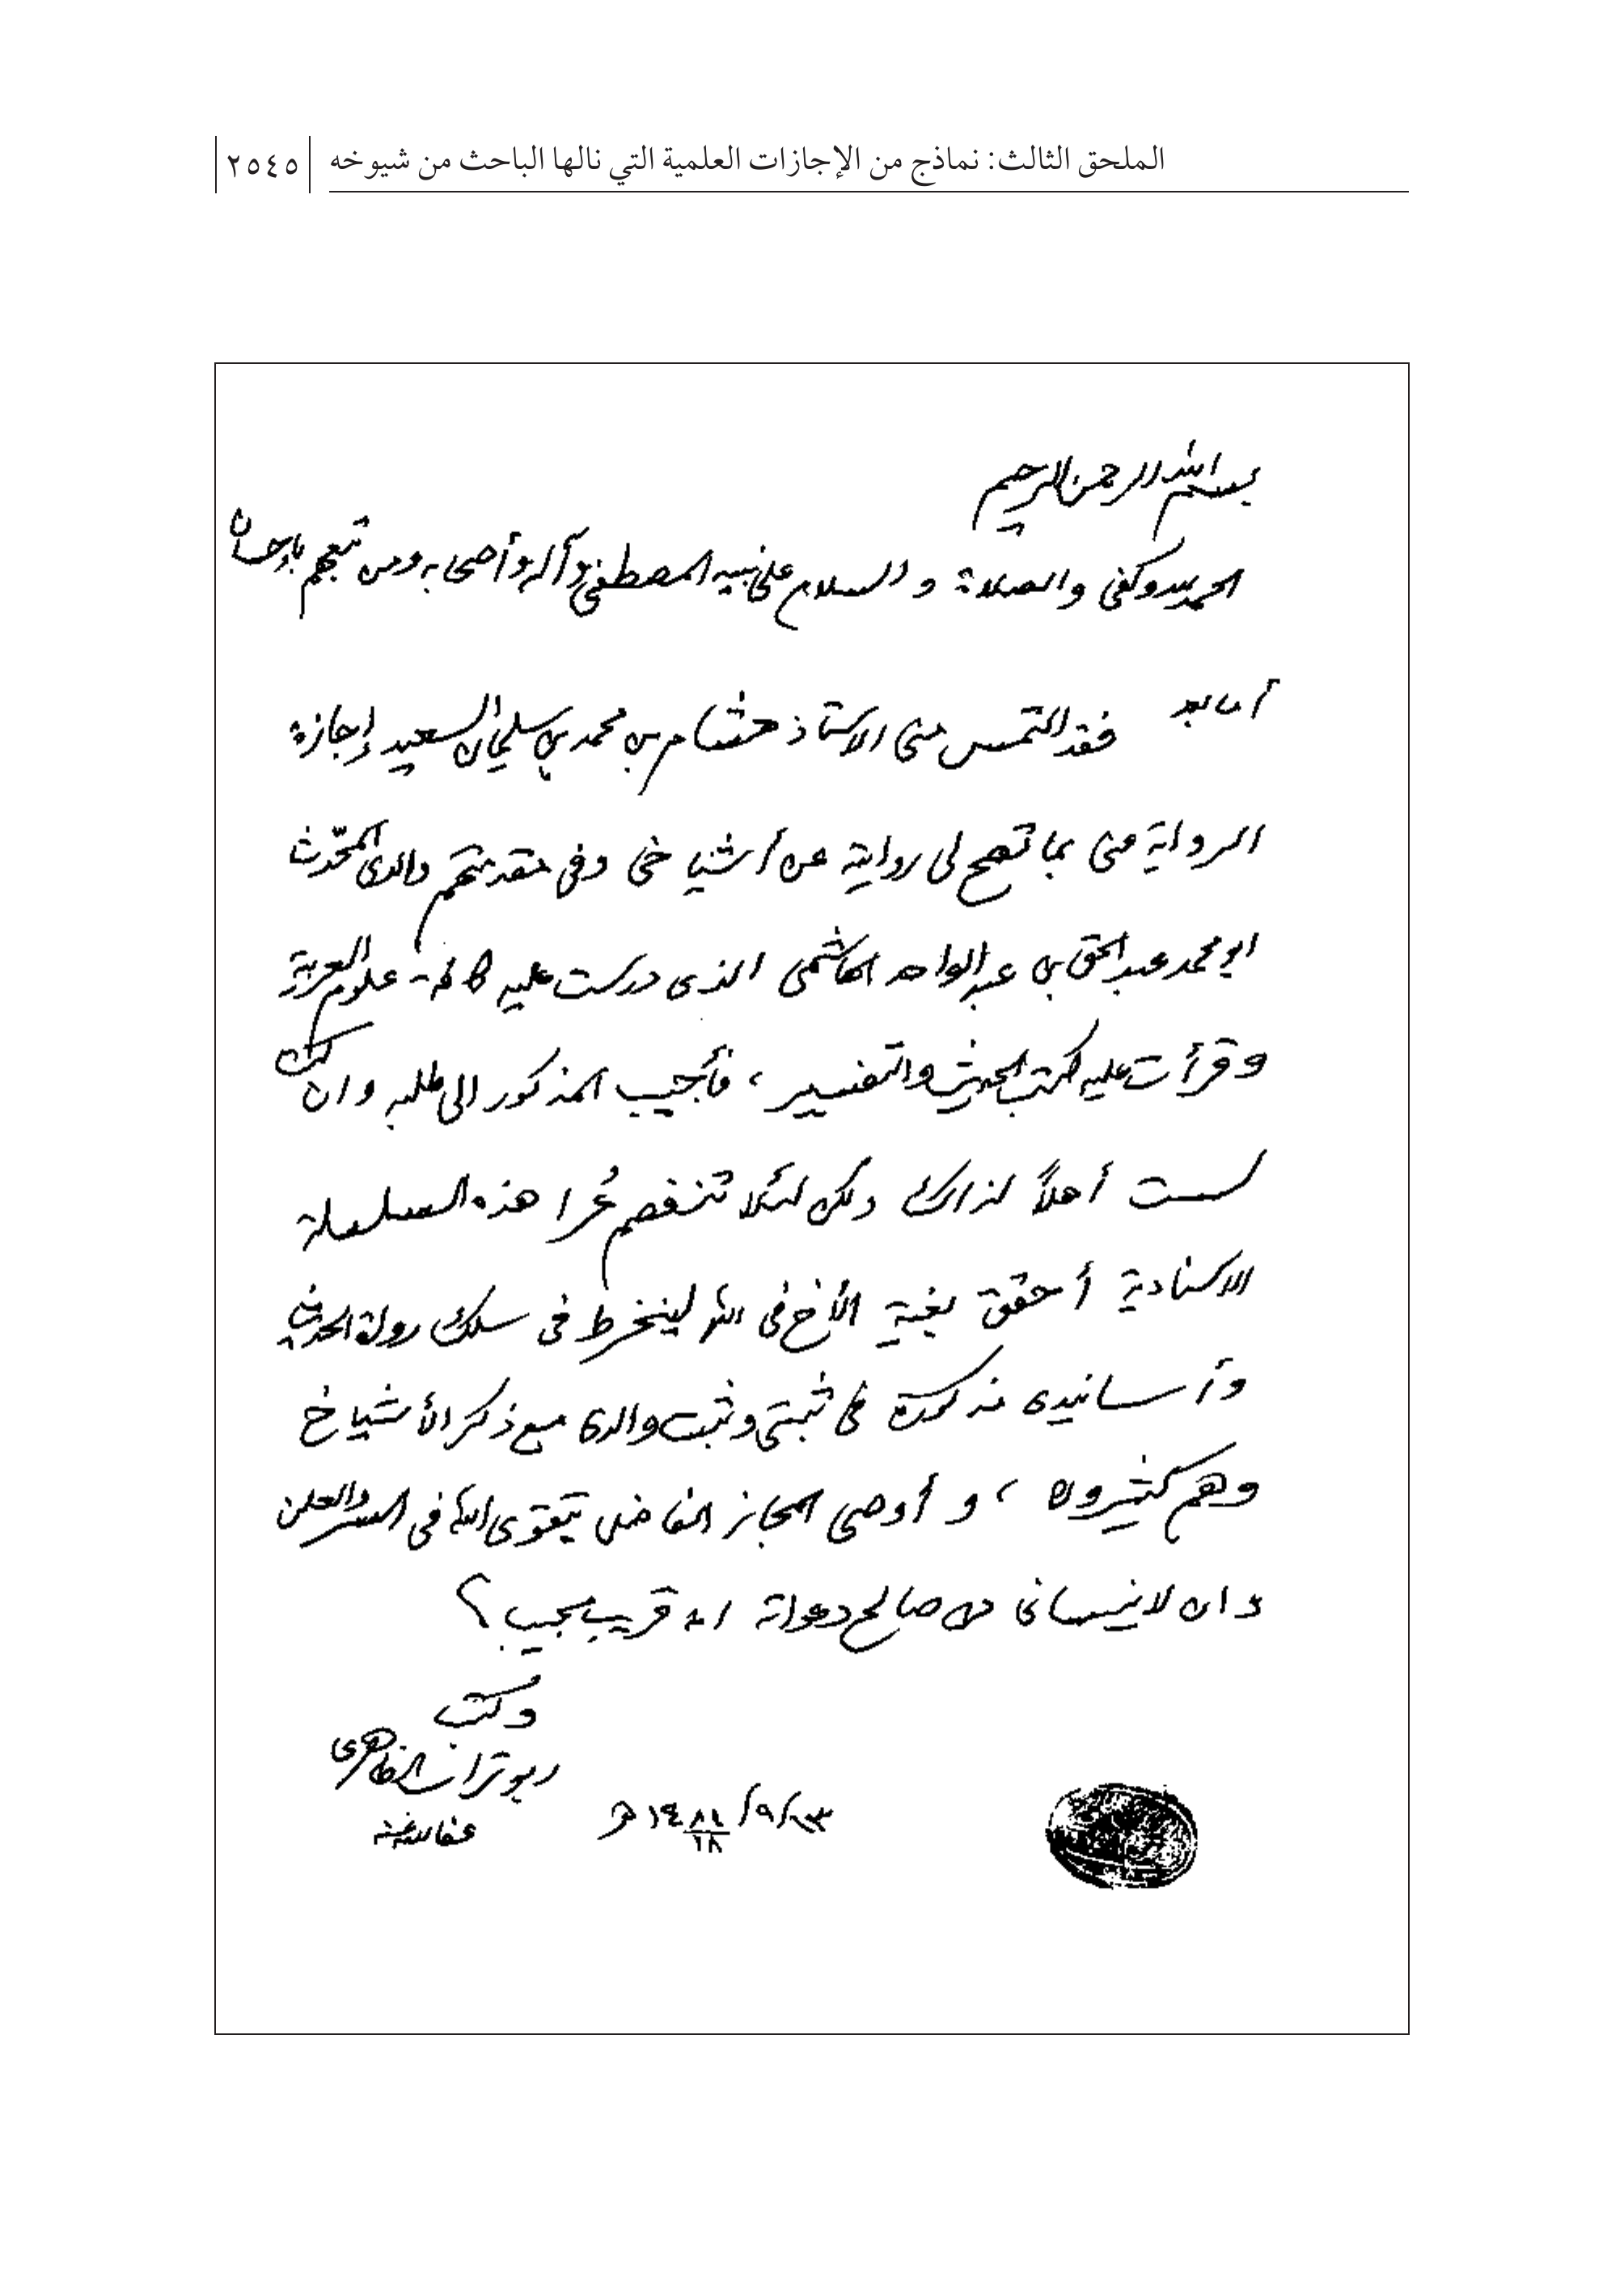 الملحق الثالث: نماذج من الإجازات العلمية التي نالها الباحث من شيوخه ٢٥٤٥
بسم الله الرحمن الرحيم
الحمد لله وكفى والصلاة والسلام على نبيه المصطفى وآله وأصحابه ومن تبعهم بإحسان
أما بعد فقد التمس منى الاستاذ هشام بن محمد بن سليمان السعيد إجازة
الرواية منى بما تصح لى رواية عن أشياخى وفى مقدمتهم والدى المحّدث
ابو محمد عبد الحق بن عبد الواحد الهاشمى الذى درست عليه كافة علوم العربية
وقرأت عليه كتب الحديث والتفسير ، فأجيب المذكور الى طلبه وان كنت
لست أهلاً لذالك ولكن لئلا تنفصم عُرا هذه السلسلة
الاسنادية أحقق بغية الأخ فى الله لينخرط فى سلك رواة الحديث
وأسانيدى مذكورة فى ثبتى وثبت والدى مع ذكر الأشياخ
وهم كثيرون ، و أوصى المجاز الفاضل بتقوى الله فى السر والعلن
وان لاينسانى من صالح دعواته انه قريب مجيب
وكتب
ابو تراب الظاهرى
عفا الله عنه